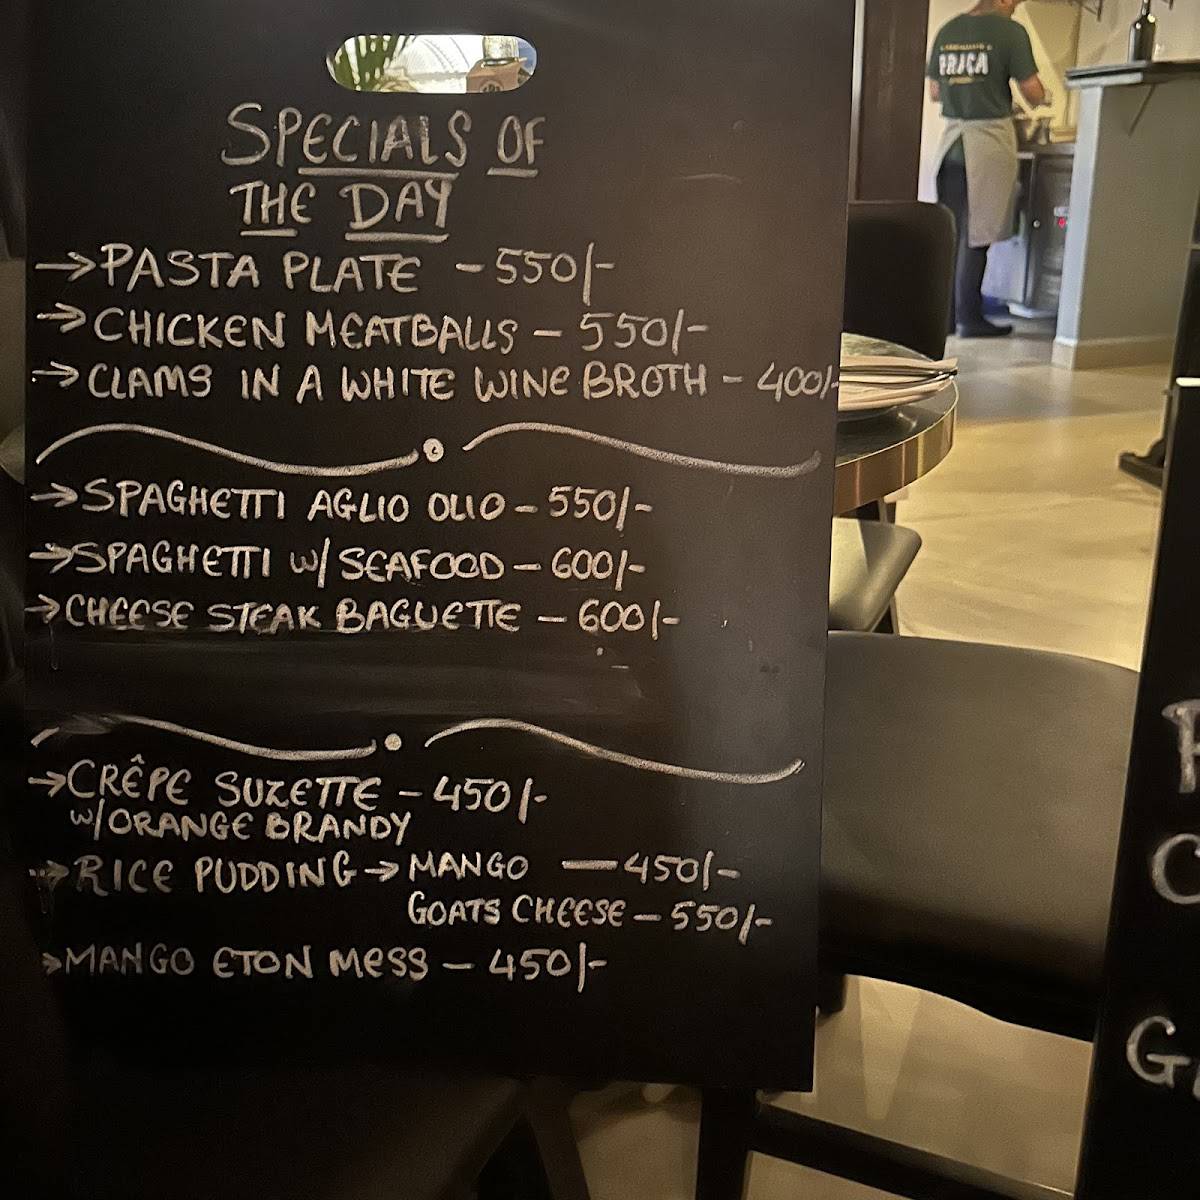 SPECIALS OF
THE DAY
→PASTA PLATE – 550/-
→CHICKEN MEATBALLS – 550/-
→CLAMS IN A WHITE WINE BROTH – 400/-
→SPAGHETTI AGLIO OLIO – 550/-
→SPAGHETTI W/ SEAFOOD – 600/-
→CHEESE STEAK BAGUETTE – 600/-
→CRÊPE SUZETTE – 450/-
W/ORANGE BRANDY
→RICE PUDDING → MANGO — 450/-
GOATS CHEESE – 550/-
→MANGO ETON MESS – 450/-